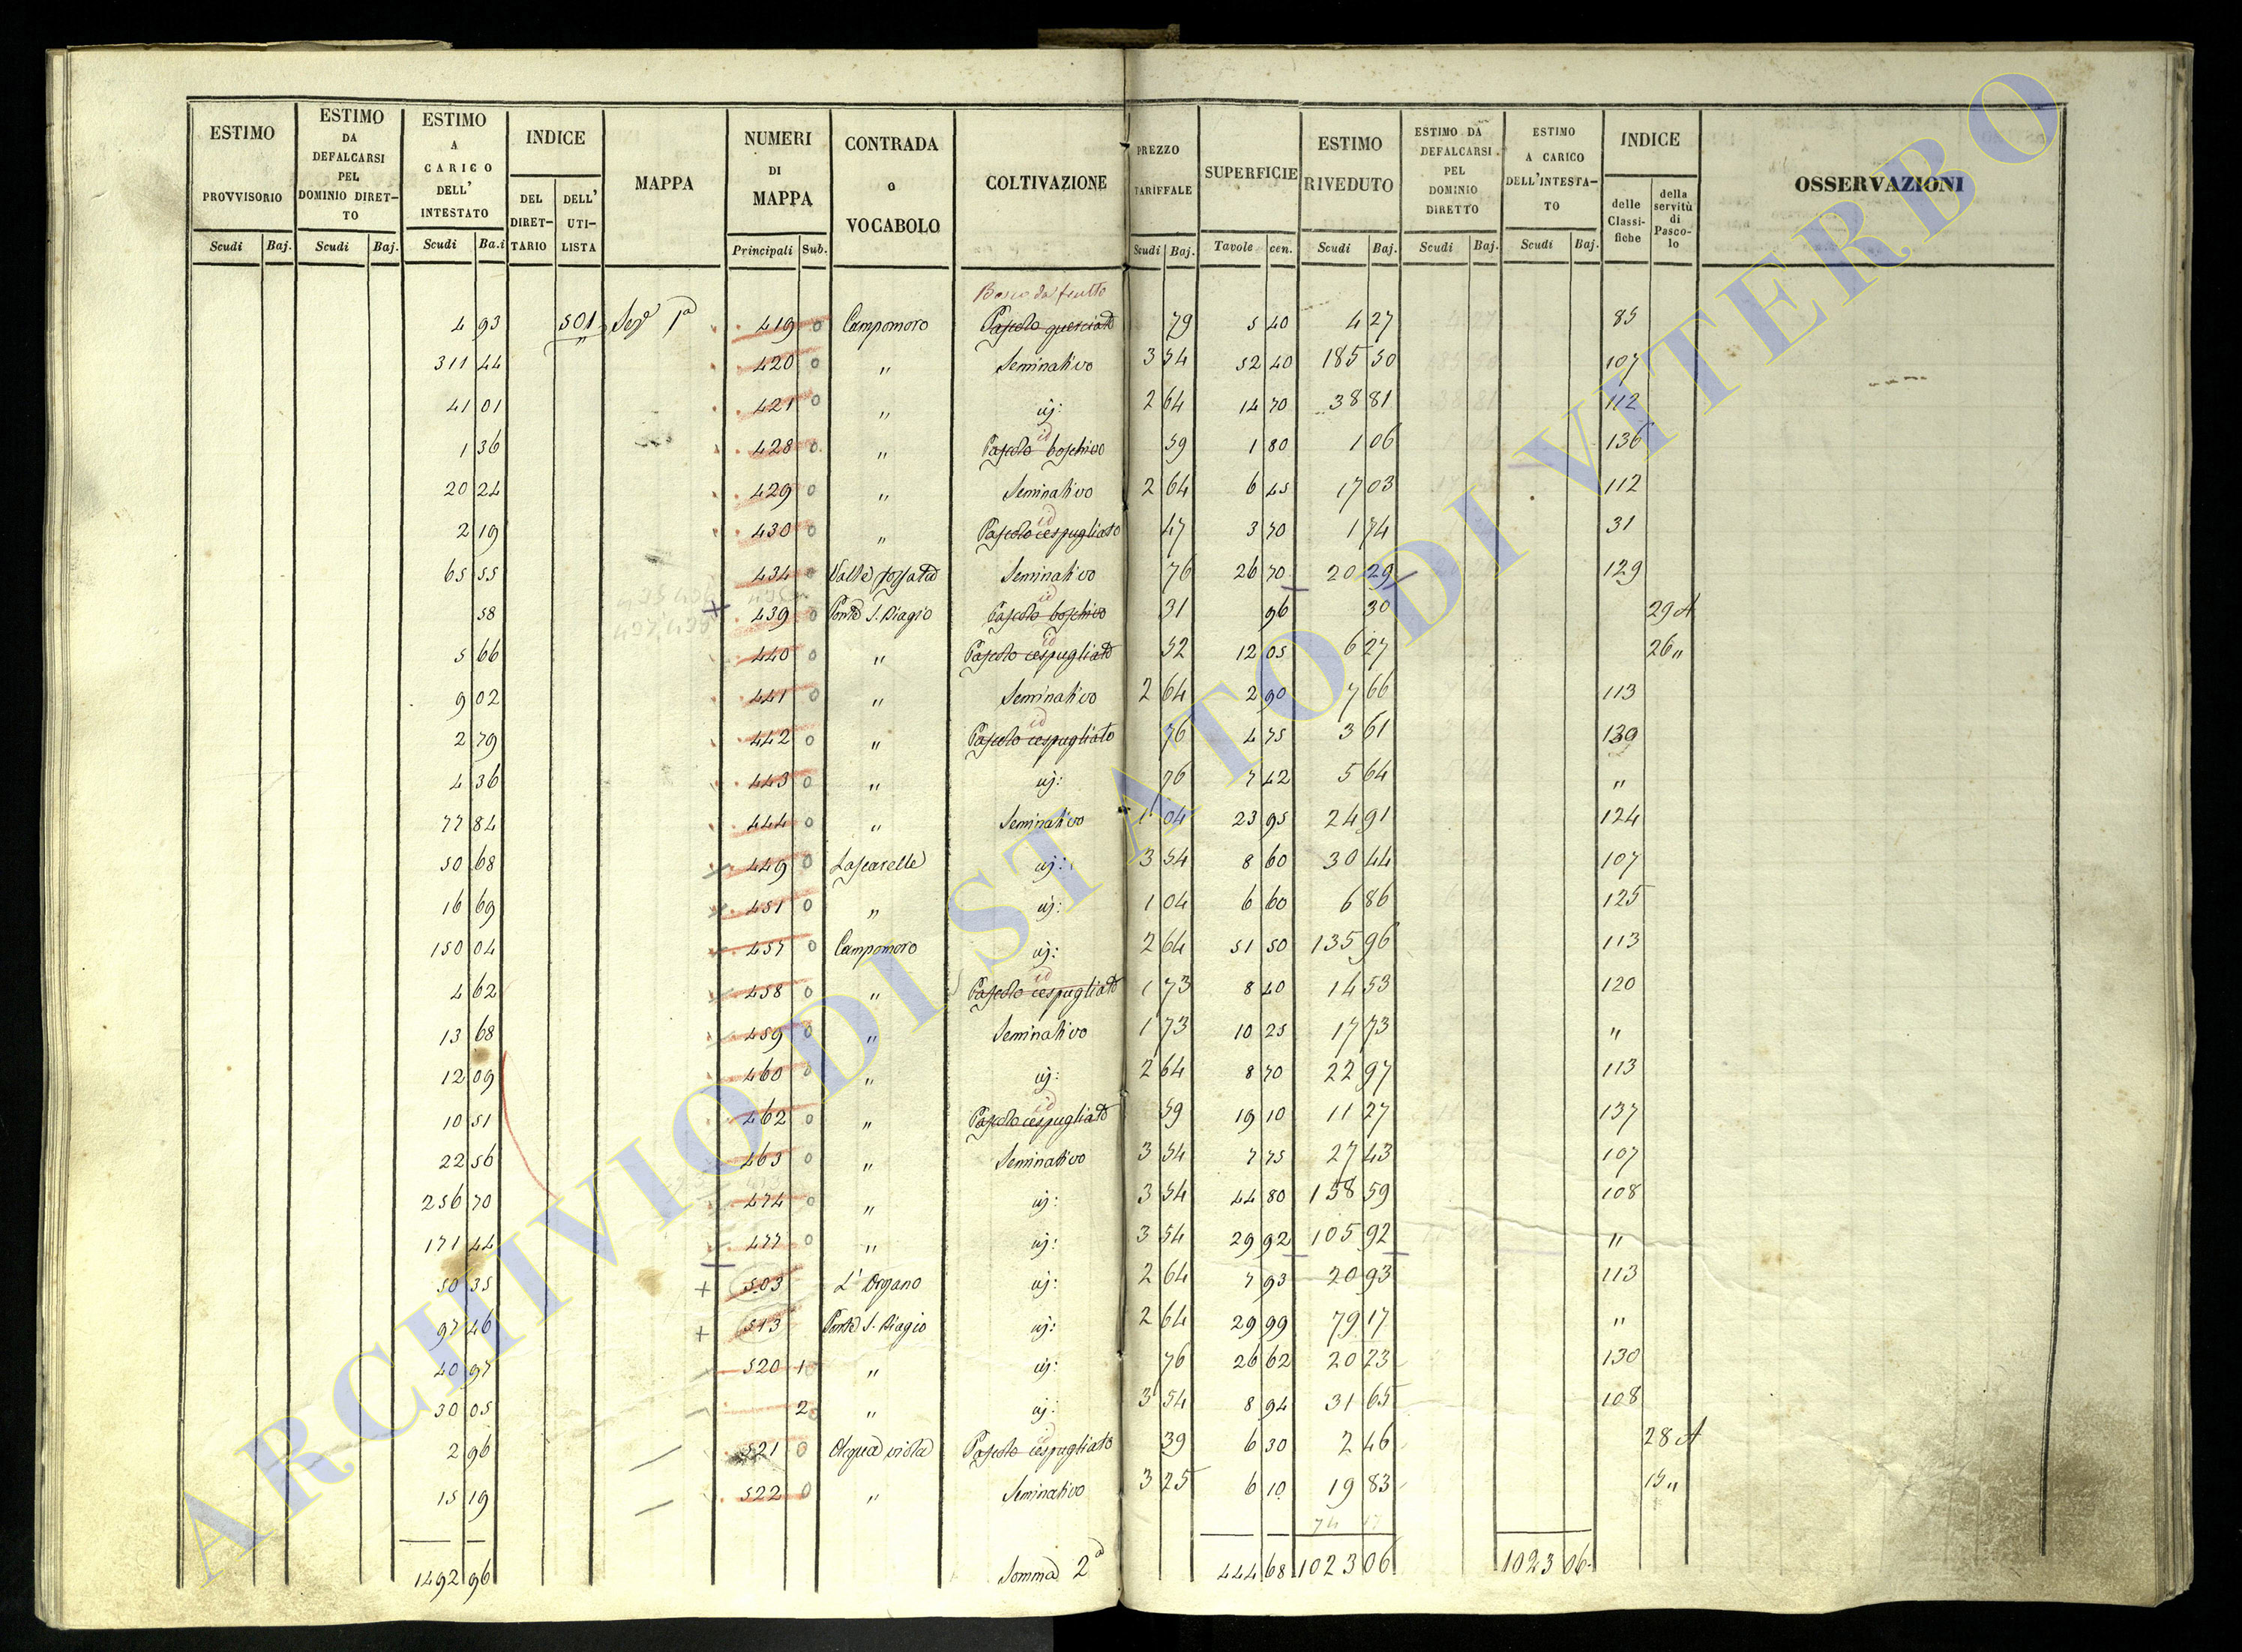 ESTIMO PROVVISORIO Scudi Baj.
ESTIMO DA DEFALCARSI PEL DOMINIO DIRETTO Scudi Baj.
ESTIMO A CARICO DELL' INTESTATO Scudi Ba.i
INDICE DEL DIRETTARIO DELL' UTILISTA
MAPPA
NUMERI DI MAPPA Principali Sub.
CONTRADA o VOCABOLO
COLTIVAZIONE
PREZZO TARIFFALE Scudi Baj.
SUPERFICIE Tavole cen.
ESTIMO RIVEDUTO Scudi Baj.
ESTIMO DA DEFALCARSI PEL DOMINIO DIRETTO Scudi Baj.
ESTIMO A CARICO DELL'INTESTATO Scudi Baj.
INDICE delle Classifiche della servitù di Pascolo
OSSERVAZIONI
Bosco da frutto
4 93 501 Sez.e 1a 419 0 Campomoro Pascolo querciato 79 5 40 4 27 85
311 44 420 0 " Seminativo 3 54 52 40 185 50 107
41 01 421 0 " id: 2 64 14 70 38 81 112
id
1 36 428 0 " Pascolo boschivo 59 1 80 1 06 136
20 24 429 0 " Seminativo 2 64 6 45 17 03 112
id
2 19 430 0 " Pascolo cespugliato 47 3 70 1 74 31
65 55 434 0 Valle Seminativo 76 26 70 20 29 129
id
58 439 0 Ponte S. Biagio Pascolo boschivo 31 96 30 29 A
id
5 66 440 0 " Pascolo cespugliato 52 12 05 6 27 26 "
9 02 441 0 " Seminativo 2 64 2 90 7 66 113
id
2 79 442 0 " Pascolo cespugliato 76 4 75 3 61 139
4 36 443 0 " id: 76 7 42 5 64 "
77 84 444 0 " Seminativo 1 04 23 95 24 91 124
50 68 449 0 Lascarelle id: 3 54 8 60 30 44 107
16 69 451 0 " id: 1 04 6 60 6 86 125
150 04 457 0 Campomoro id: 2 64 51 50 135 96 113
id
4 62 458 0 " Pascolo cespugliato 1 73 8 40 14 53 120
13 68 459 0 " Seminativo 1 73 10 25 17 73 "
12 09 460 0 " id: 2 64 8 70 22 97 113
id
10 51 462 0 " Pascolo cespugliato 59 19 10 11 27 137
22 56 463 0 " Seminativo 3 54 7 75 27 43 107
256 70 474 0 " id: 3 54 44 80 158 59 108
171 44 477 0 " id: 3 54 29 92 105 92 "
50 35 503 L' Organo id: 2 64 7 93 20 93 113
97 46 513 Ponte S. Biagio id: 2 64 29 99 79 17 "
40 97 520 1 " id: 76 26 62 20 23 130
30 05 2 " id: 3 54 8 94 31 65 108
id
2 96 521 0 Acqua viola Pascolo cespugliato 39 6 30 2 46 28 A
15 19 522 0 " Seminativo 3 25 6 10 19 83 15 "
1492 96 Somma 2a 444 68 1023 06 1023 06
ARCHIVIO DI STATO DI VITERBO